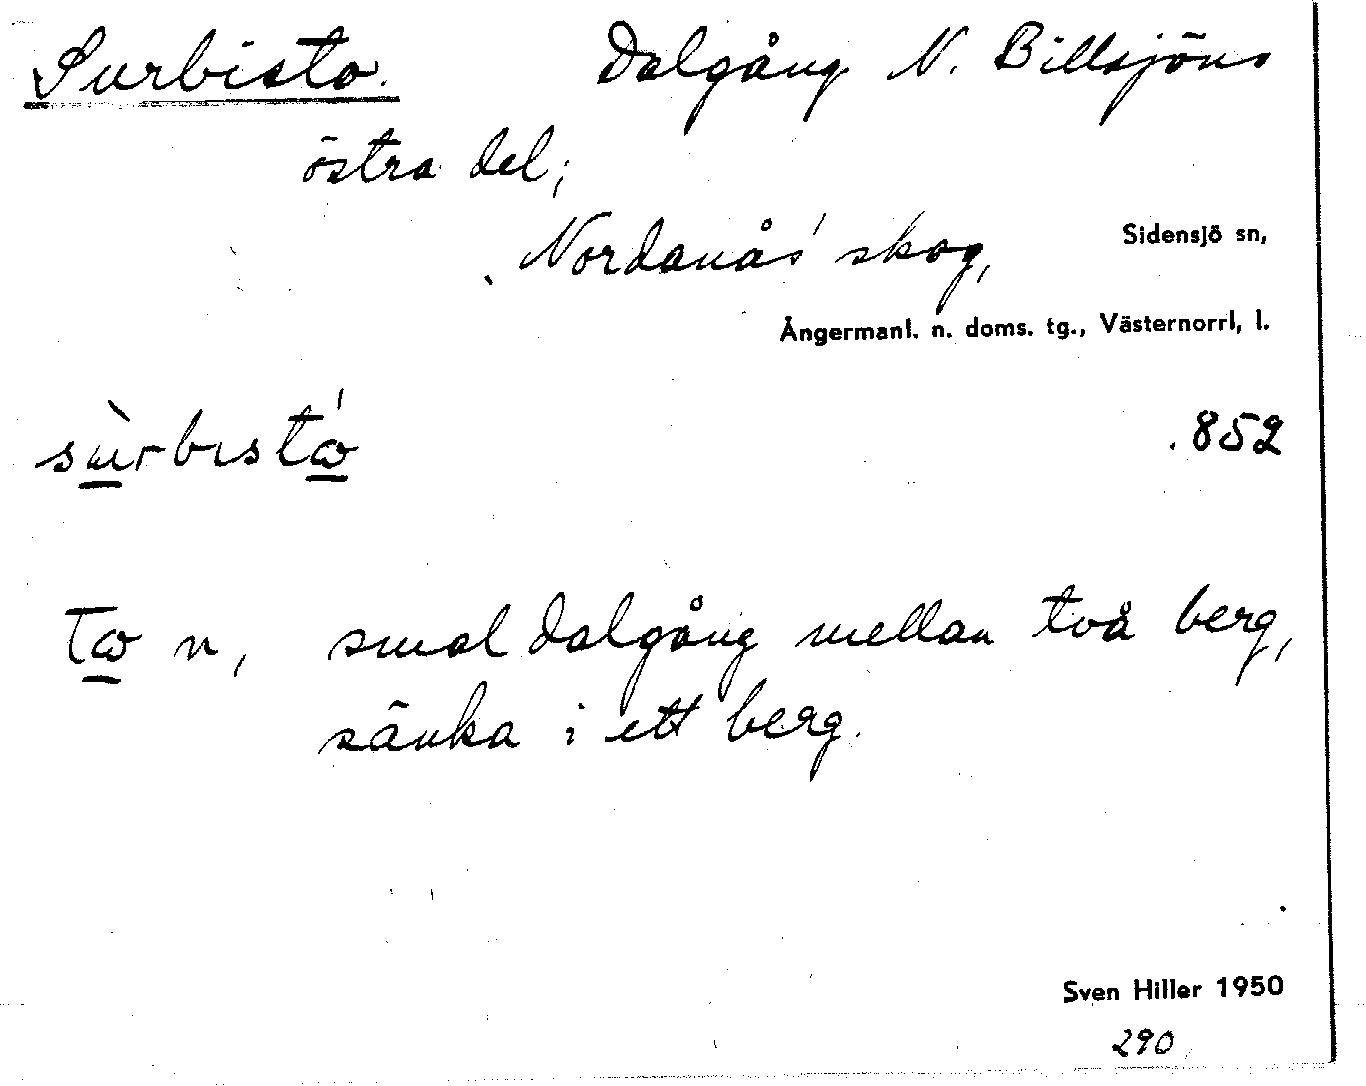 Surbisto. Dalgång N. Billsjöns
östra del;
Nordanås' skog, Sidensjö sn,
Ångermanl. n. doms. tg., Västernorrl, l.
sùrbistɷ́ .852
tɷ n, smal dalgång mellan två berg,
sänka i ett berg.
Sven Hiller 1950
290